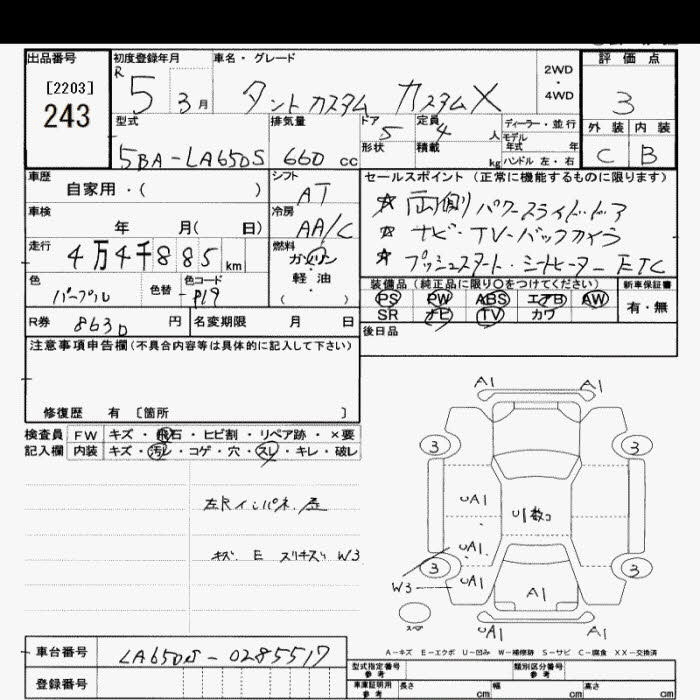 出品番号
[2203]
243
初度登録年月
R 5 3 月
車名・グレード
タントカスタム カスタムX
2WD
・
4WD
評価点
3
外装 内装
C B
型式
5BA-LA650S
排気量
660 cc
ドア
5
定員
4 人
形状
積載
kg
ディーラー・並行
モデル
年式 年
ハンドル 左・右
車歴
自家用・( )
シフト
AT
セールスポイント (正常に機能するものに限ります)
☆ 両側パワースライドドア
☆ ナビ・TV・バックカメラ
☆ プッシュスタート・シートヒーター ETC
車検
年 月( 日)
冷房
AA/C
走行
4万4千885 km
燃料
ガソリン
軽・油
( )
色
パープル
色替
色コード
P19
装備品 (純正品に限り○をつけてください)
新車保証書
PS PW ABS エアB AW
SR ナビ TV カワ
有・無
R券 8630 円
名変期限 月 日
後日品
注意事項申告欄 (不具合内容等は具体的に記入して下さい)
修復歴 有 [箇所 ]
検査員 FW キズ・飛石・ヒビ割・リペア跡・×要
記入欄 内装 キズ・汚レ・コゲ・穴・スレ・キレ・破レ
左Rインパネ
キズ E スリキズ W3
A1 A1
3 3
UA1
U1数コ
UA1
3 3
W3
UA1
A1
スペア
A1 A1
A-キズ E-エクボ U-凹み W-補修跡 S-サビ C-腐食 XX-交換済
車台番号 LA650S-0285517
登録番号
型式指定番号
参考
類別区分番号
参考
車庫証明用
参考
長さ cm
幅 cm
高さ cm